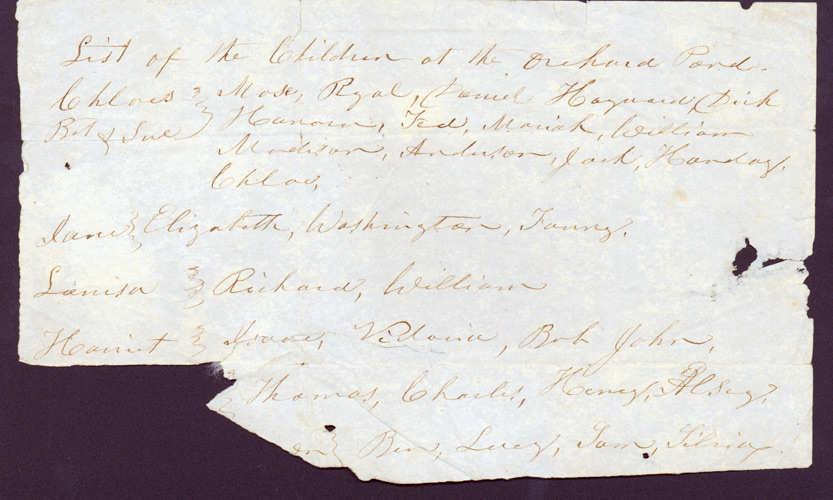 List of the Children at the Orchard Pond.
Chloes } Mose, Royal, Daniel Hayward, Dick
Bet & Sue } Hanson, Ted, Mariah, William
Madison, Anderson, Jack, Handay.
Chloe,
Jane } Elizabeth, Washington, Fanny.
Louisa } Richard, William
Harriet } Isaac, Victoria, Bob John,
} Thomas, Charles, Henry, Alsey,
en } Ben, Lucy, Tom, Silvia